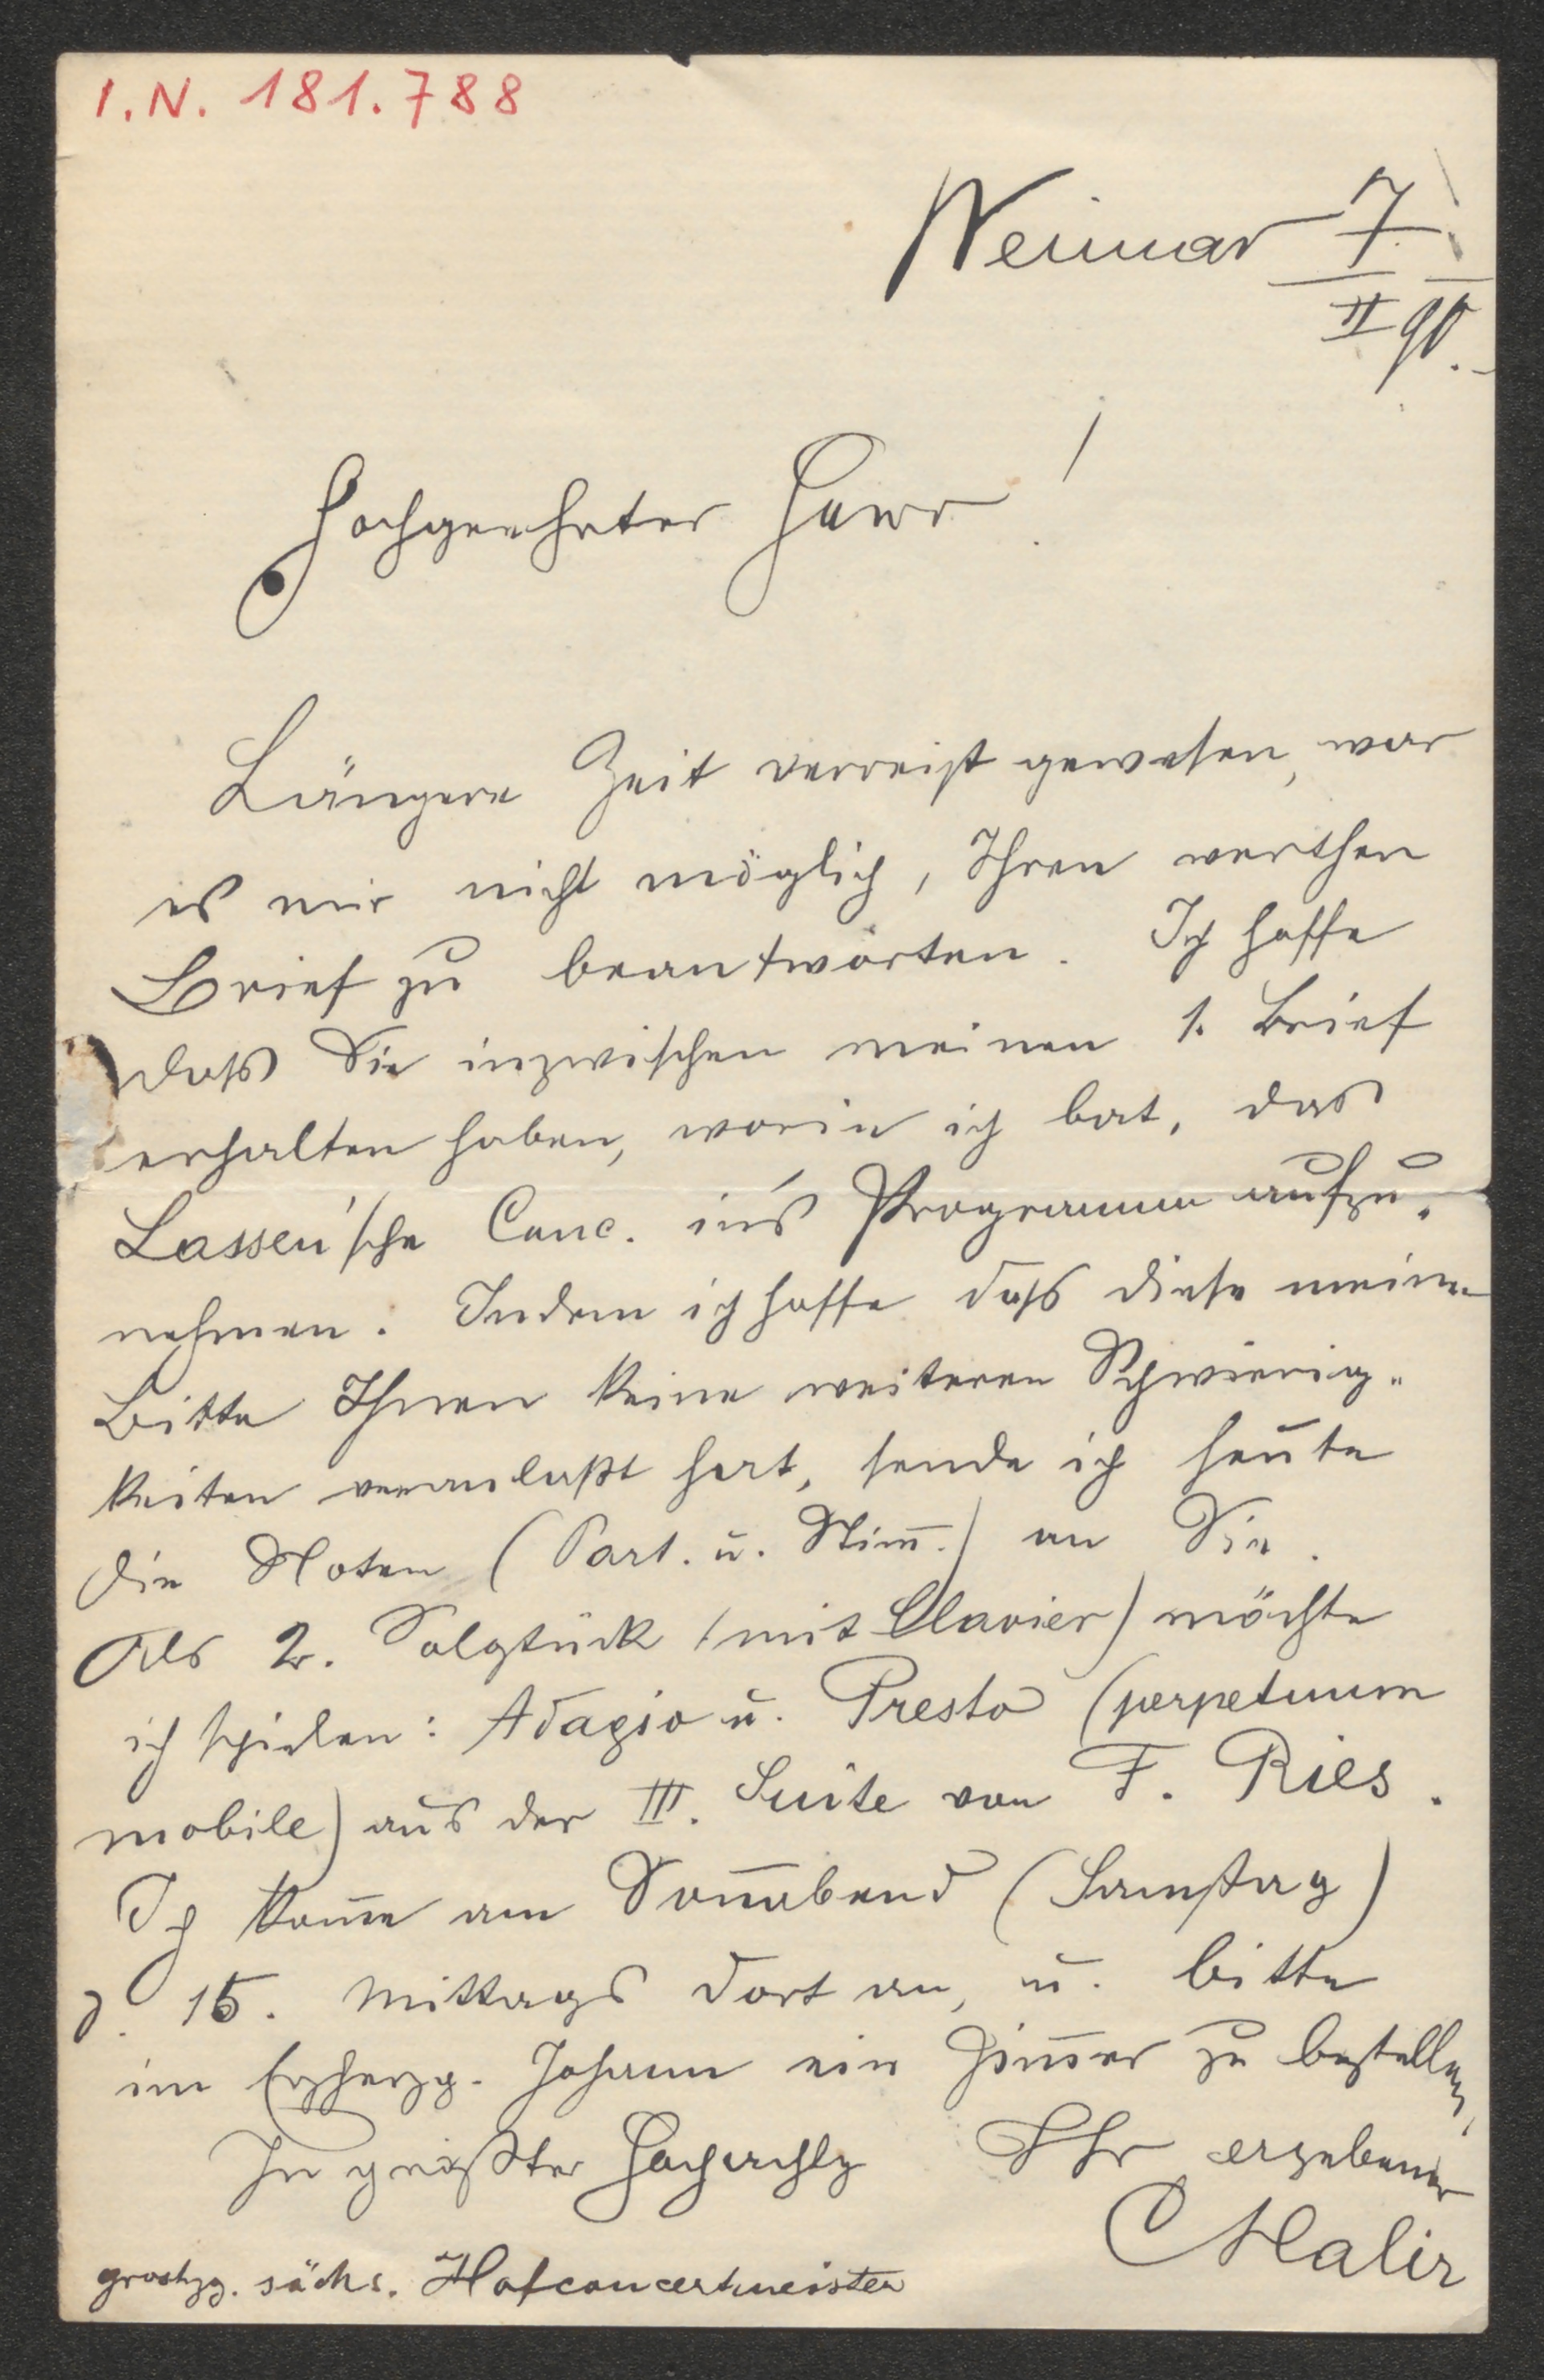 I.N. 181.788
Weimar 7.
II 90.
Hochgeehrter Herr!
Längere Zeit verreist gewesen, war
es mir nicht möglich, Ihren werthen
Brief zu beantworten. Ich hoffe
daß Sie inzwischen meinen 1. Brief
erhalten haben, worin ich bat, das
Lassen'sche Conc. in's Programm aufzu-
nehmen. Indem ich hoffe daß diese meine
Bitte Ihnen keine weiteren Schwierig-
keiten veranlaßt hat, sende ich heute
die Noten (Part. u. Stim̄.) an Sie.
Als 2. Solostück (mit Clavier) möchte
ich spielen: Adagio u. Presto (perpetuum
mobile) aus der III. Suite von F. Ries.
Ich kom̄e am Son̄abend (Samstag)
d. 15. Mittags dort an, u. bitte
im Erzherzg. Johann ein Zim̄er zu bestellen,
In größter Hochachtg Ihr ergebener
CHalir
groshzg. sächs. Hofconcertmeister